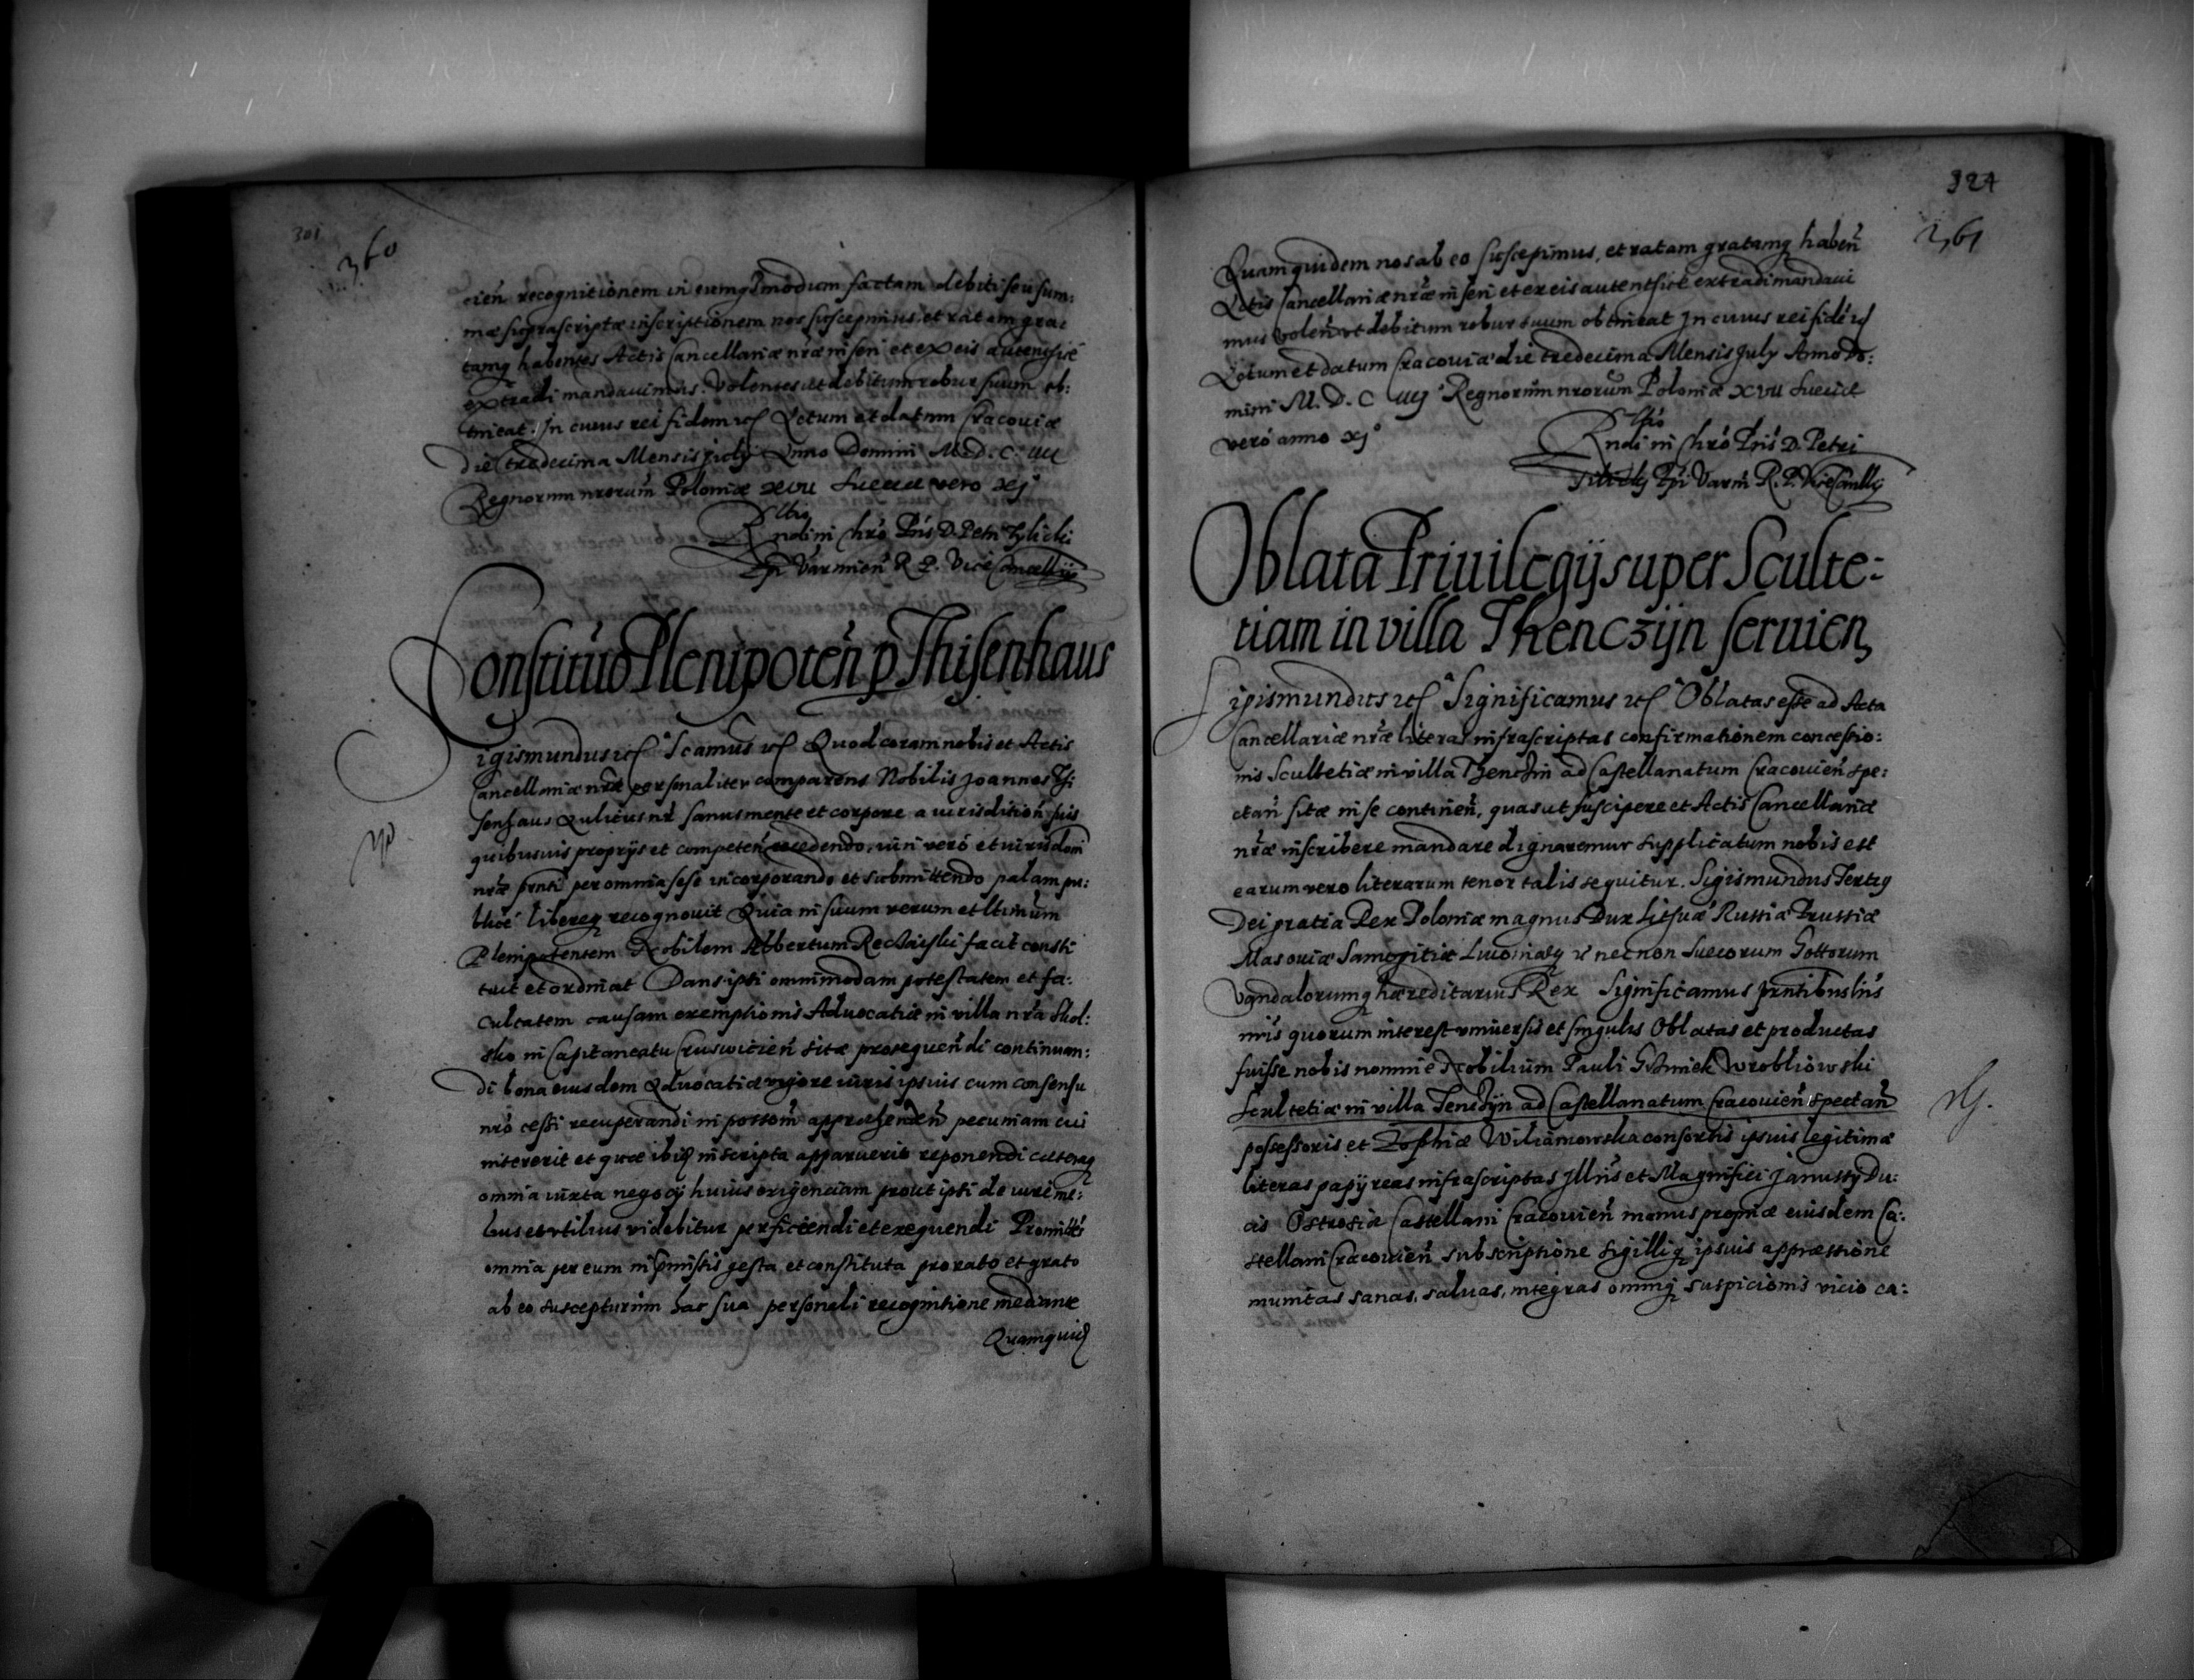 301
360
cień recognitionem in eumq modum factam debiti seu sum:
mæ suprascriptæ inscriptionem nos suscepimus et ratam gra:
tamq habentes Actis Cancellariæ nræ inseri et ex eis autentice
extradi mandauimus. Volentes ut debitum robur suum ob:
tineat. In cuius rei fidem etc Actum et datum Cracouiæ
Die tredecima Mensis July Anno Domini M.D.C. IIII
Regnorum nrorum Poloniæ XVII Sueciæ vero XI°
Rndi in Chro Pris D. Petri Tylicki
Epi Varmień R. P. Vice Cancellarij
Constitutio Plenipoteń p Thisenhaus
Sigismundus etc Scamus etc Quod coram nobis et Actis
Cancellariæ nræ personaliter comparens Nobilis Joannes Thi
senhaus Aulicus nr sanus mente et corpore a iurisdition suis
quibusuis proprijs et competeń recedendo, iuri vero et iurisdioni
nræ pnti per omnia sese incorporando et submittendo palam pu:
blice libereq recognouit Quia in suum verum et ltimum
Plenipotentem Nobilem Albertum facit consti
tuit et ordinat Dans ipsi omnimodam potestatem et fa:
cultatem causam exemptionis Aduocatiæ in villa nra Skol:
sko in Capitaneatu Cruswicień sitæ prosequendi continuan:
di bona eiusdem Aduocatiæ vigore iuris ipsius cum consensu
nro cessi recuperandi in possom apprehendeń pecuniam cui
intererit et quæ ibiq inscripta apparuerit reponendi cæteraq
omnia iuxta negocij huius exigenciam prout ipsi de iure me:
lius et vtilius videbitur perficiendi et exequendi Promittes
omnia per eum in pmissis gesta et constituta pro rato et grato
ab eo suscepturum hac sua personali recognitione mediante
Quamquid
324
361
Quamquidem nos ab eo suscepimus, et ratam gratamq habeń
Actis Cancellariæ nræ inseri et ex eis autentice extradi mandaui
mus voleń vt debitum robur suum obtineat In cuius rei fidé
Actum et datum Cracouiæ die tredecima Mensis July Anno Do:
mini M. D. C IIII° Regnorum nrorum Poloniæ XVII Sueciæ
vero anno XI°
Rndi in Chro Pris D. Petri
Tilicky Epi Varm R. P. Vicecancllrij
Oblata Priuilegij super Sculte:
tiam in villa Thenczijn seruień
Sigismundus etc Significamus etc Oblatas esse ad Acta
Cancellariæ nræ literas infrascriptas confirmationem concessio:
nis Scultetiæ in villa Thenczin ad Castellanatum Cracouień spe:
ctań sitæ in se contineń, quas ut suscipere et Actis Cancellariæ
nræ inscribere mandare dignaremur supplicatum nobis est
earum vero literarum tenor talis sequitur. Sigismundus Tertius
Dei gratia Rex Poloniæ magnus Dux Lithuæ Russiæ Prussiæ
Masouiæ Samogitiæ Liuoniæq nec non Suecorum Gottorum
Vandalorumq hæreditarius Rex Significamus pntibus lris
nris quorum interest vniuersis et singulis Oblatas et productas
fuisse nobis nomine Nobilium Pauli Wrobliowski
Scultetiæ in villa Tenczijn ad Castellanatum Cracouień spectań
possessoris et Zophiæ consortis ipsius legitimæ
literas papyreas infrascriptas Jllris et Magnifici Janussy Du:
cis Ostrosiæ Castellani Cracouień manus propriæ eiusdem Ca:
stellani Cracouień subscriptione sigilliq ipsius appræssione
munitas sanas, saluas, integras omniq suspicionis vicio ca: